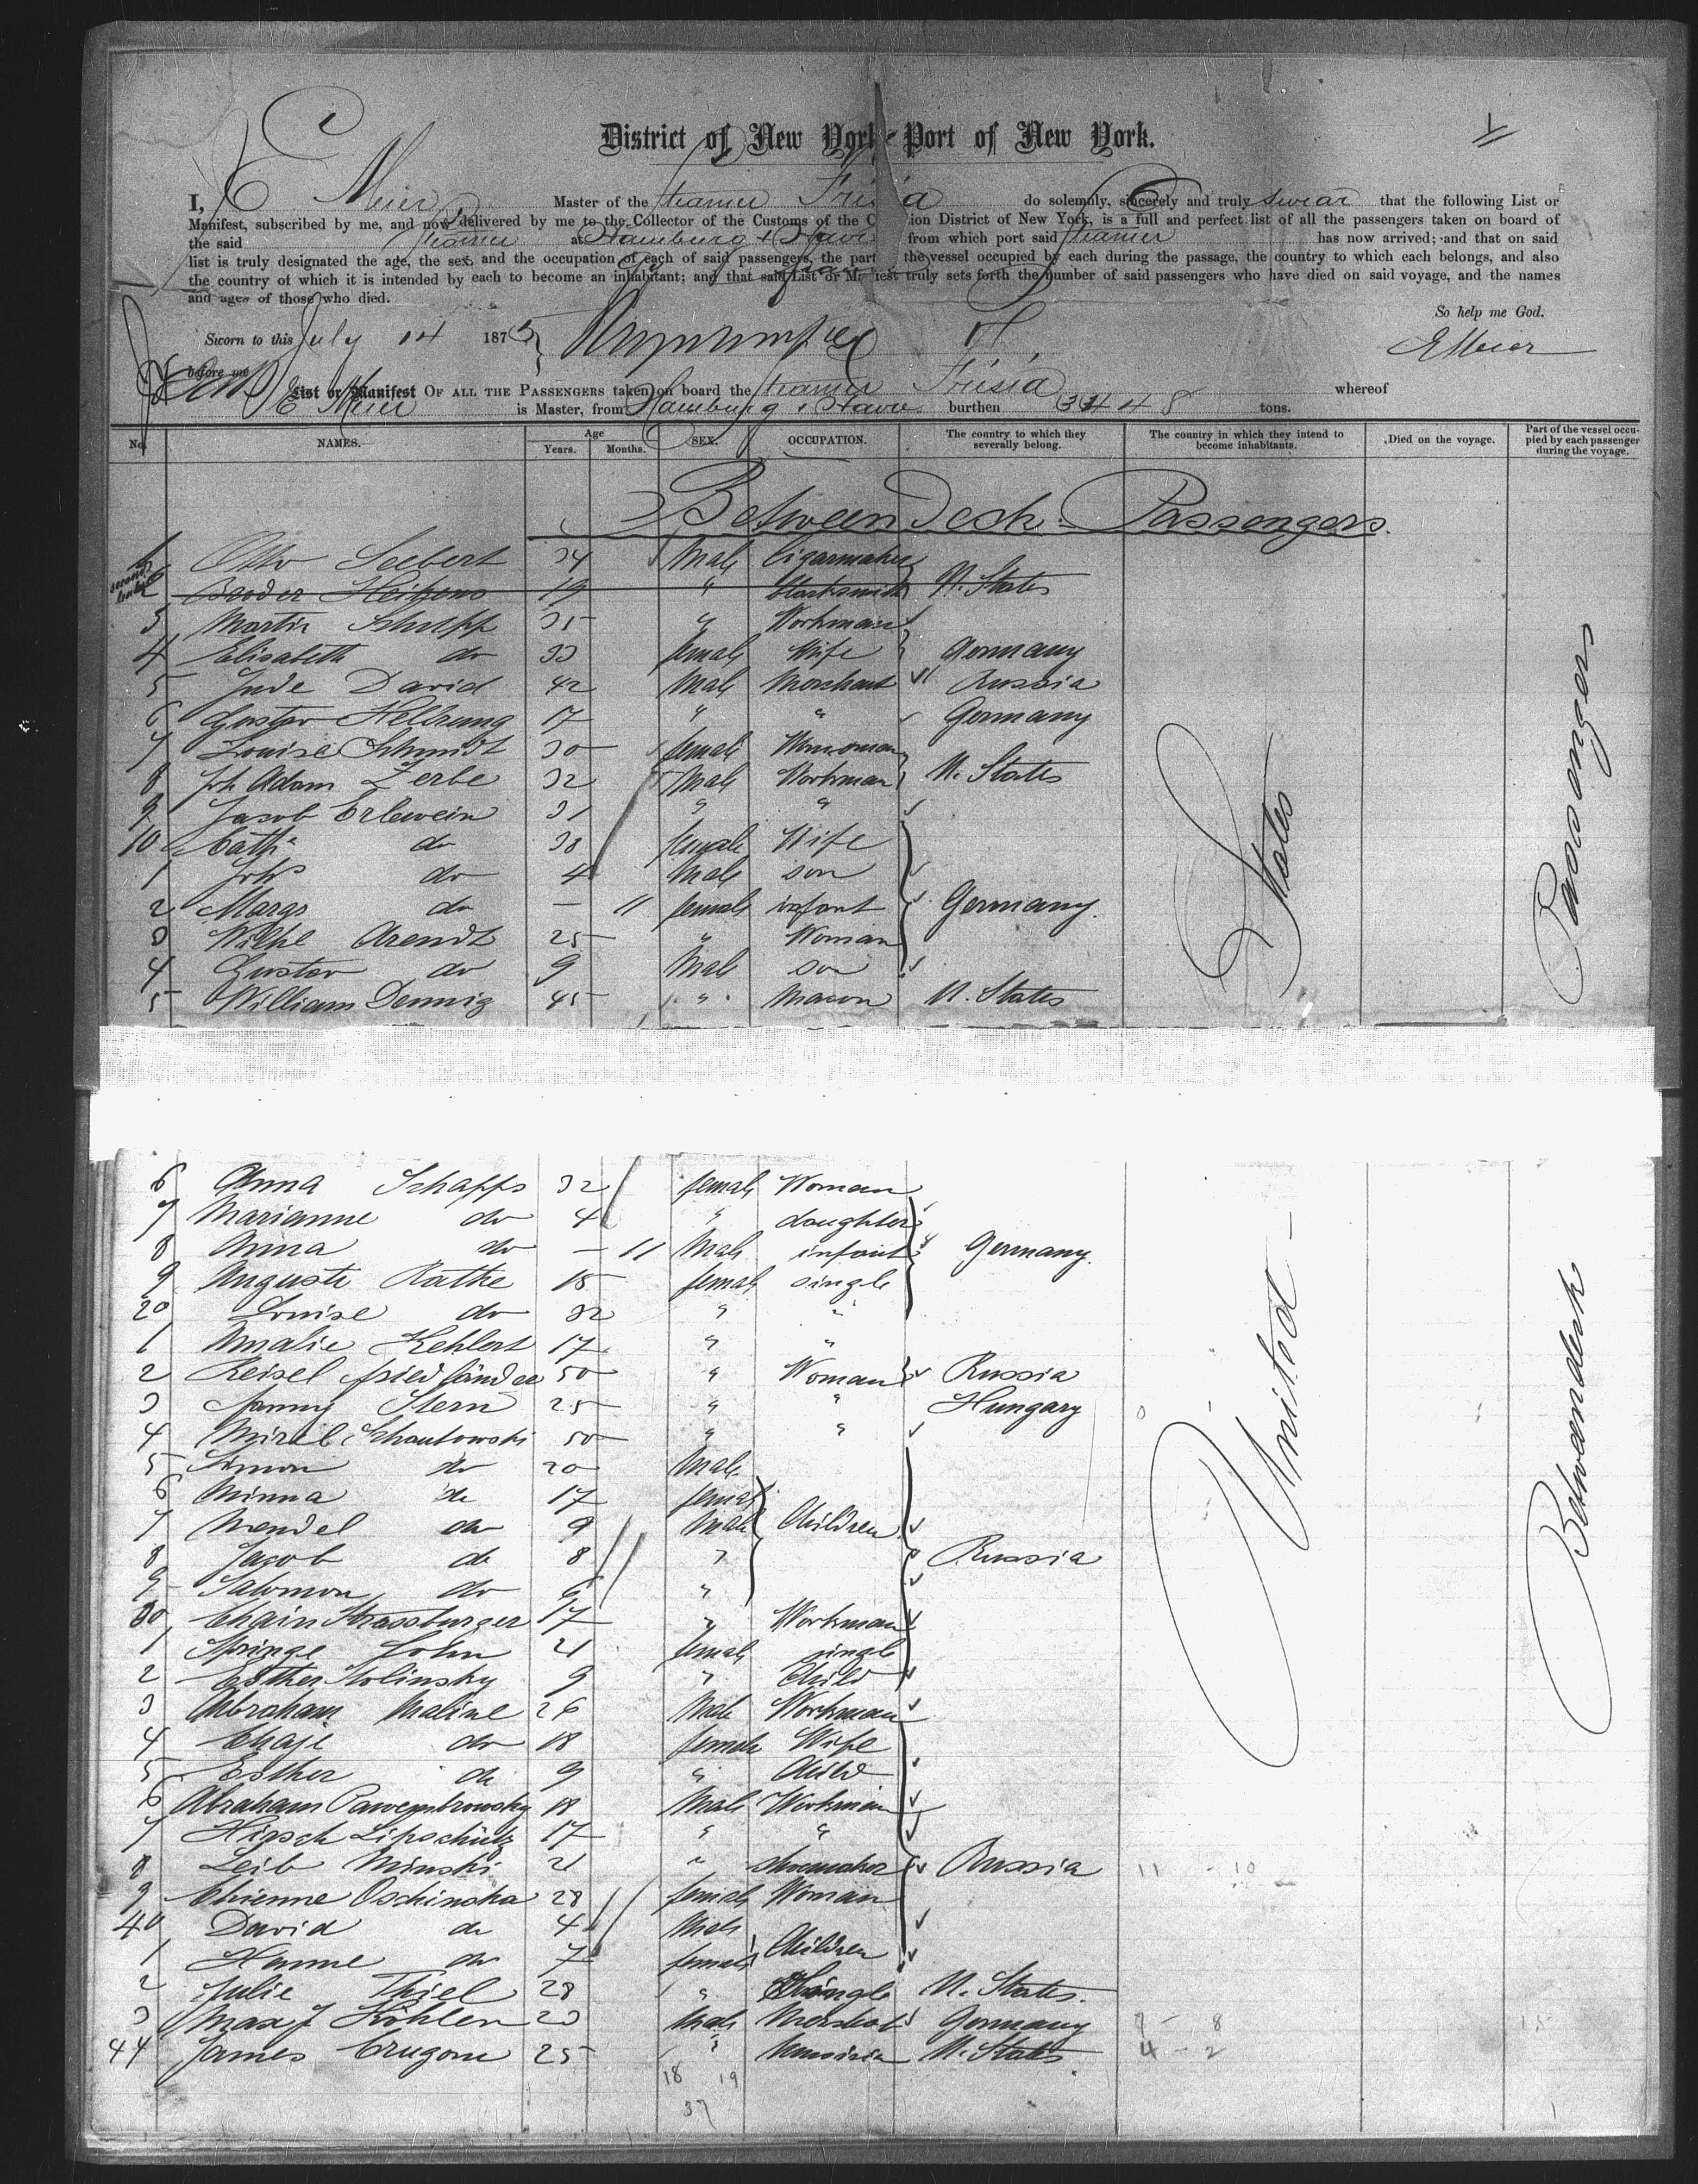 District of New York - Port of New York.
I, E Meier Master of the steamer Frisia do solemnly, sincerely and truly swear that the following List or
Manifest, subscribed by me, and now delivered by me to the Collector of the Customs of the C ion District of New York, is a full and perfect list of all the passengers taken on board of
the said steamer at Hamburg & Havre from which port said steamer has now arrived; and that on said
list is truly designated the age, the sex, and the occupation of each of said passengers, the part the vessel occupied by each during the passage, the country to which each belongs, and also
the country of which it is intended by each to become an inhabitant; and that said List or M ifest truly sets forth the number of said passengers who have died on said voyage, and the names
and ages of those who died.
So help me God.
Sworn to this July 14 1875
EMeier
before me
List or Manifest OF ALL THE PASSENGERS taken on board the steamer Frisia whereof
E Meier is Master, from Hamburg & Havre burthen 3448 tons.
No. NAMES. Age Years. Months. SEX. OCCUPATION. The country to which they severally belong. The country in which they intend to become inhabitants. Died on the voyage. Part of the vessel occupied by each passenger during the voyage.
Between Deck Passengers.
1 Otto Seebert 34 Male Cigarmaker
2 19 " blacksmith U. States
3 Martin Schupp 35 " Workman
4 Elisabeth do 33 female Wife Germany
5 Jude David 42 Male Merchant Russia
6 Gustav Hellrung 17 " " Germany
7 Louise Schmidt 30 female
8 Joh Adam Zerbe 32 Male Workman U. States
9 Jacob Erlewein 31 " "
10 Cath do 30 female Wife
1 Joh do 4 Male son
2 Margr do — 11 female infant Germany.
3 Wilhe Arendt 25 " Woman
4 Gustav do 9 Male son
5 William Dennig 45 " Mason U. States
6 Anna Schapps 32 female Woman
7 Marianne do 4 " daughter
8 Anna do — 11 Male infant Germany.
9 Auguste Rathe 18 female single
20 Louise do 32 " "
1 Amalie Kehlert 17 " "
2 Reisel Friedländer 50 " Woman Russia
3 Fanny Stern 25 " " Hungary
4 Mirel Schautowski 50 " "
5 Simon do 20 Male
6 Minna do 17 female
7 Mendel do 9 Male Children
8 Jacob do 8 " Russia
9 Salomon do 6 "
30 Chain Strassburger 17 " Workman
1 Springe John 21 female single
2 Esther Stolinsky 9 " Child
3 Abraham Maline 26 Male Workman
4 Chaje do 18 female Wife
5 Esther do 9 " Child
6 Abraham 18 Male Workman
7 Hirsch Lipschütz 17 " "
8 Leib Minski 21 " shoemaker Russia
9 Chienne Oschinska 28 female Woman
40 David do 4 Male
1 Hanne do 7 female Children
2 Julie Thiel 28 " Single U. States.
3 Max J Köhler 23 Male Merchant Germany
44 James Crugom 25 " U. States
18 19
37
United States
Betweendeck Passengers